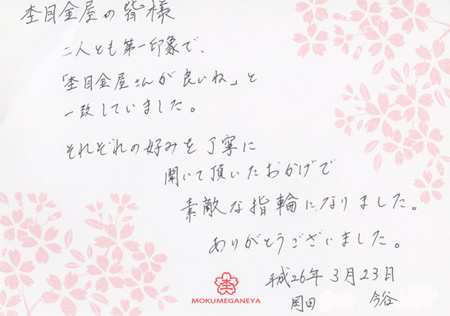 杢目金屋の皆様
二人とも第一印象で、
「杢目金屋さんが良いね」と
一致していました。
それぞれの好みを丁寧に
聞いて頂いたおかげで
素敵な指輪になりました。
ありがとうございました。
平成26年 3月23日
岡田 今谷
MOKUMEGANEYA